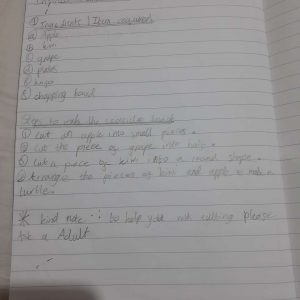 ① Ingredients /
ⓐ Apple
ⓑ kiwi
ⓒ grape
ⓓ plates
ⓔ knife
ⓕ chopping board
Steps to make the
① Cut an apple into small pieces.
② Cut the piece of grape into half.
③ Cut a piece of kiwi into a round shape.
④ Arrange the pieces of kiwi and apple to make a
turtle.
* kind note : to help you with cutting please
ask a Adult